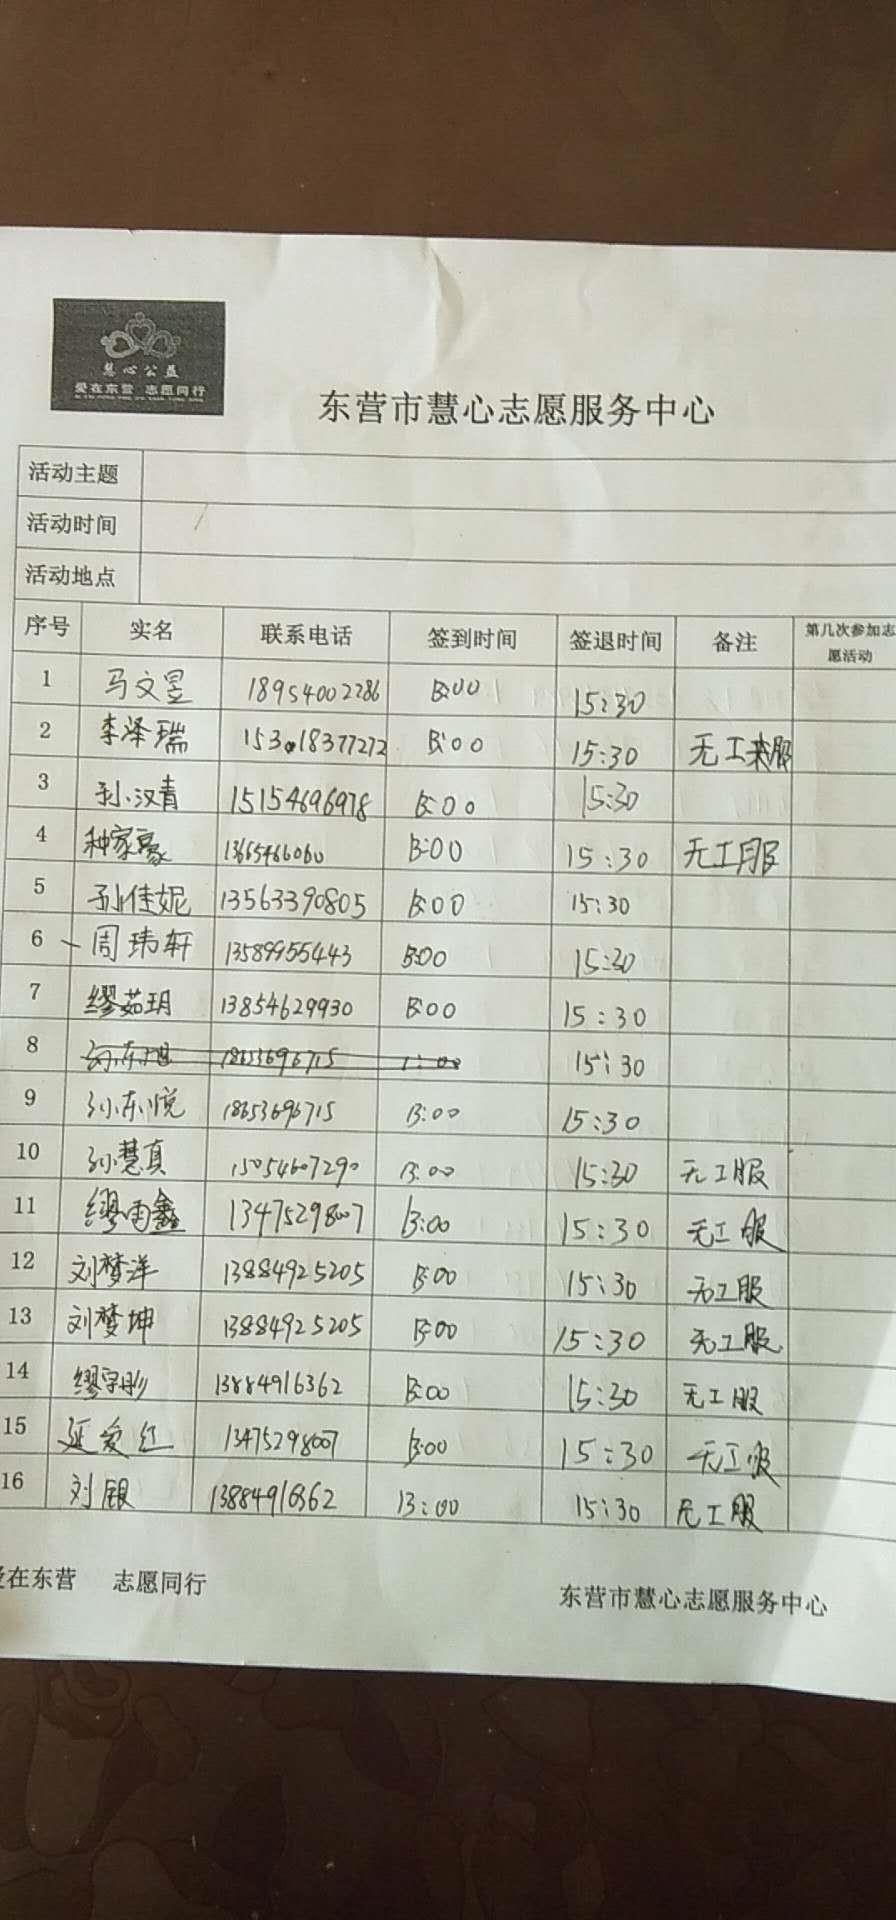 慧心公益
爱在东营 志愿同行
东营市慧心志愿服务中心
活动主题
活动时间
活动地点
序号 实名 联系电话 签到时间 签退时间 备注 第几次参加志愿活动
1 马文昱 18954002286 13:00 15:30
2 李泽瑞 15318377272 13:00 15:30 无工服
3 孙汉青 15154696978 13:00 15:30
4 种家豪 13665466060 13:00 15:30 无工服
5 孙佳妮 13563390805 13:00 15:30
6 周玮轩 13589955443 13:00 15:30
7 缪茹玥 13854629930 13:00 15:30
8 18653696715 15:30
9 孙东悦 18653696715 13:00 15:30
10 孙慧真 15054607290 13:00 15:30 无工服
11 缪雨鑫 13475298007 13:00 15:30 无工服
12 刘梦洋 13884925205 13:00 15:30 无工服
13 刘梦坤 13884925205 13:00 15:30 无工服
14 缪宇彤 13884916362 13:00 15:30 无工服
15 延爱红 13475298007 13:00 15:30 无工服
16 刘银 13884916362 13:00 15:30 无工服
爱在东营 志愿同行
东营市慧心志愿服务中心